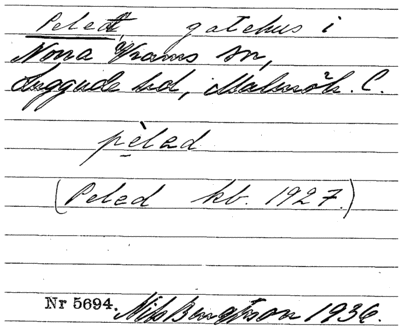 Peled, gatehus i
Norra Vrams sn,
Luggude hd, Malmöh. C.
pèlad
(Peled kb. 1927.)
Nr 5694. Nils Bengtsson 1936.